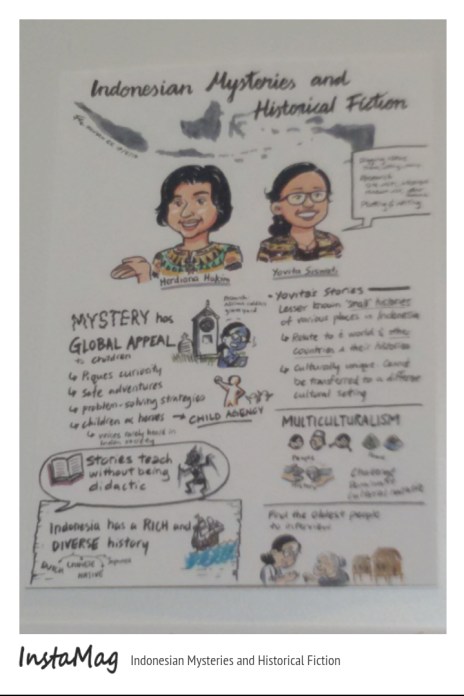 Indonesian Mysteries and
Historical Fiction
Herdiana Hakim
Yovita Siswati
MYSTERY has
GLOBAL APPEAL
to children
↳ Piques curiosity
↳ Safe adventures
↳ problem-solving strategies
↳ children as heroes → CHILD AGENCY
↳ voices rarely heard in
Stories teach
without being
didactic
Indonesia has a RICH and
DIVERSE history
Dutch Chinese
NATIVE
• Yovita's Stories
Lesser known "small" histories
of various places in Indonesia
↳ Route to & world & other
countries & their histories
↳ Culturally unique cannot
be transferred to a different
cultural setting
MULTICULTURALISM
People
Find the oldest people
to interview
InstaMag Indonesian Mysteries and Historical Fiction